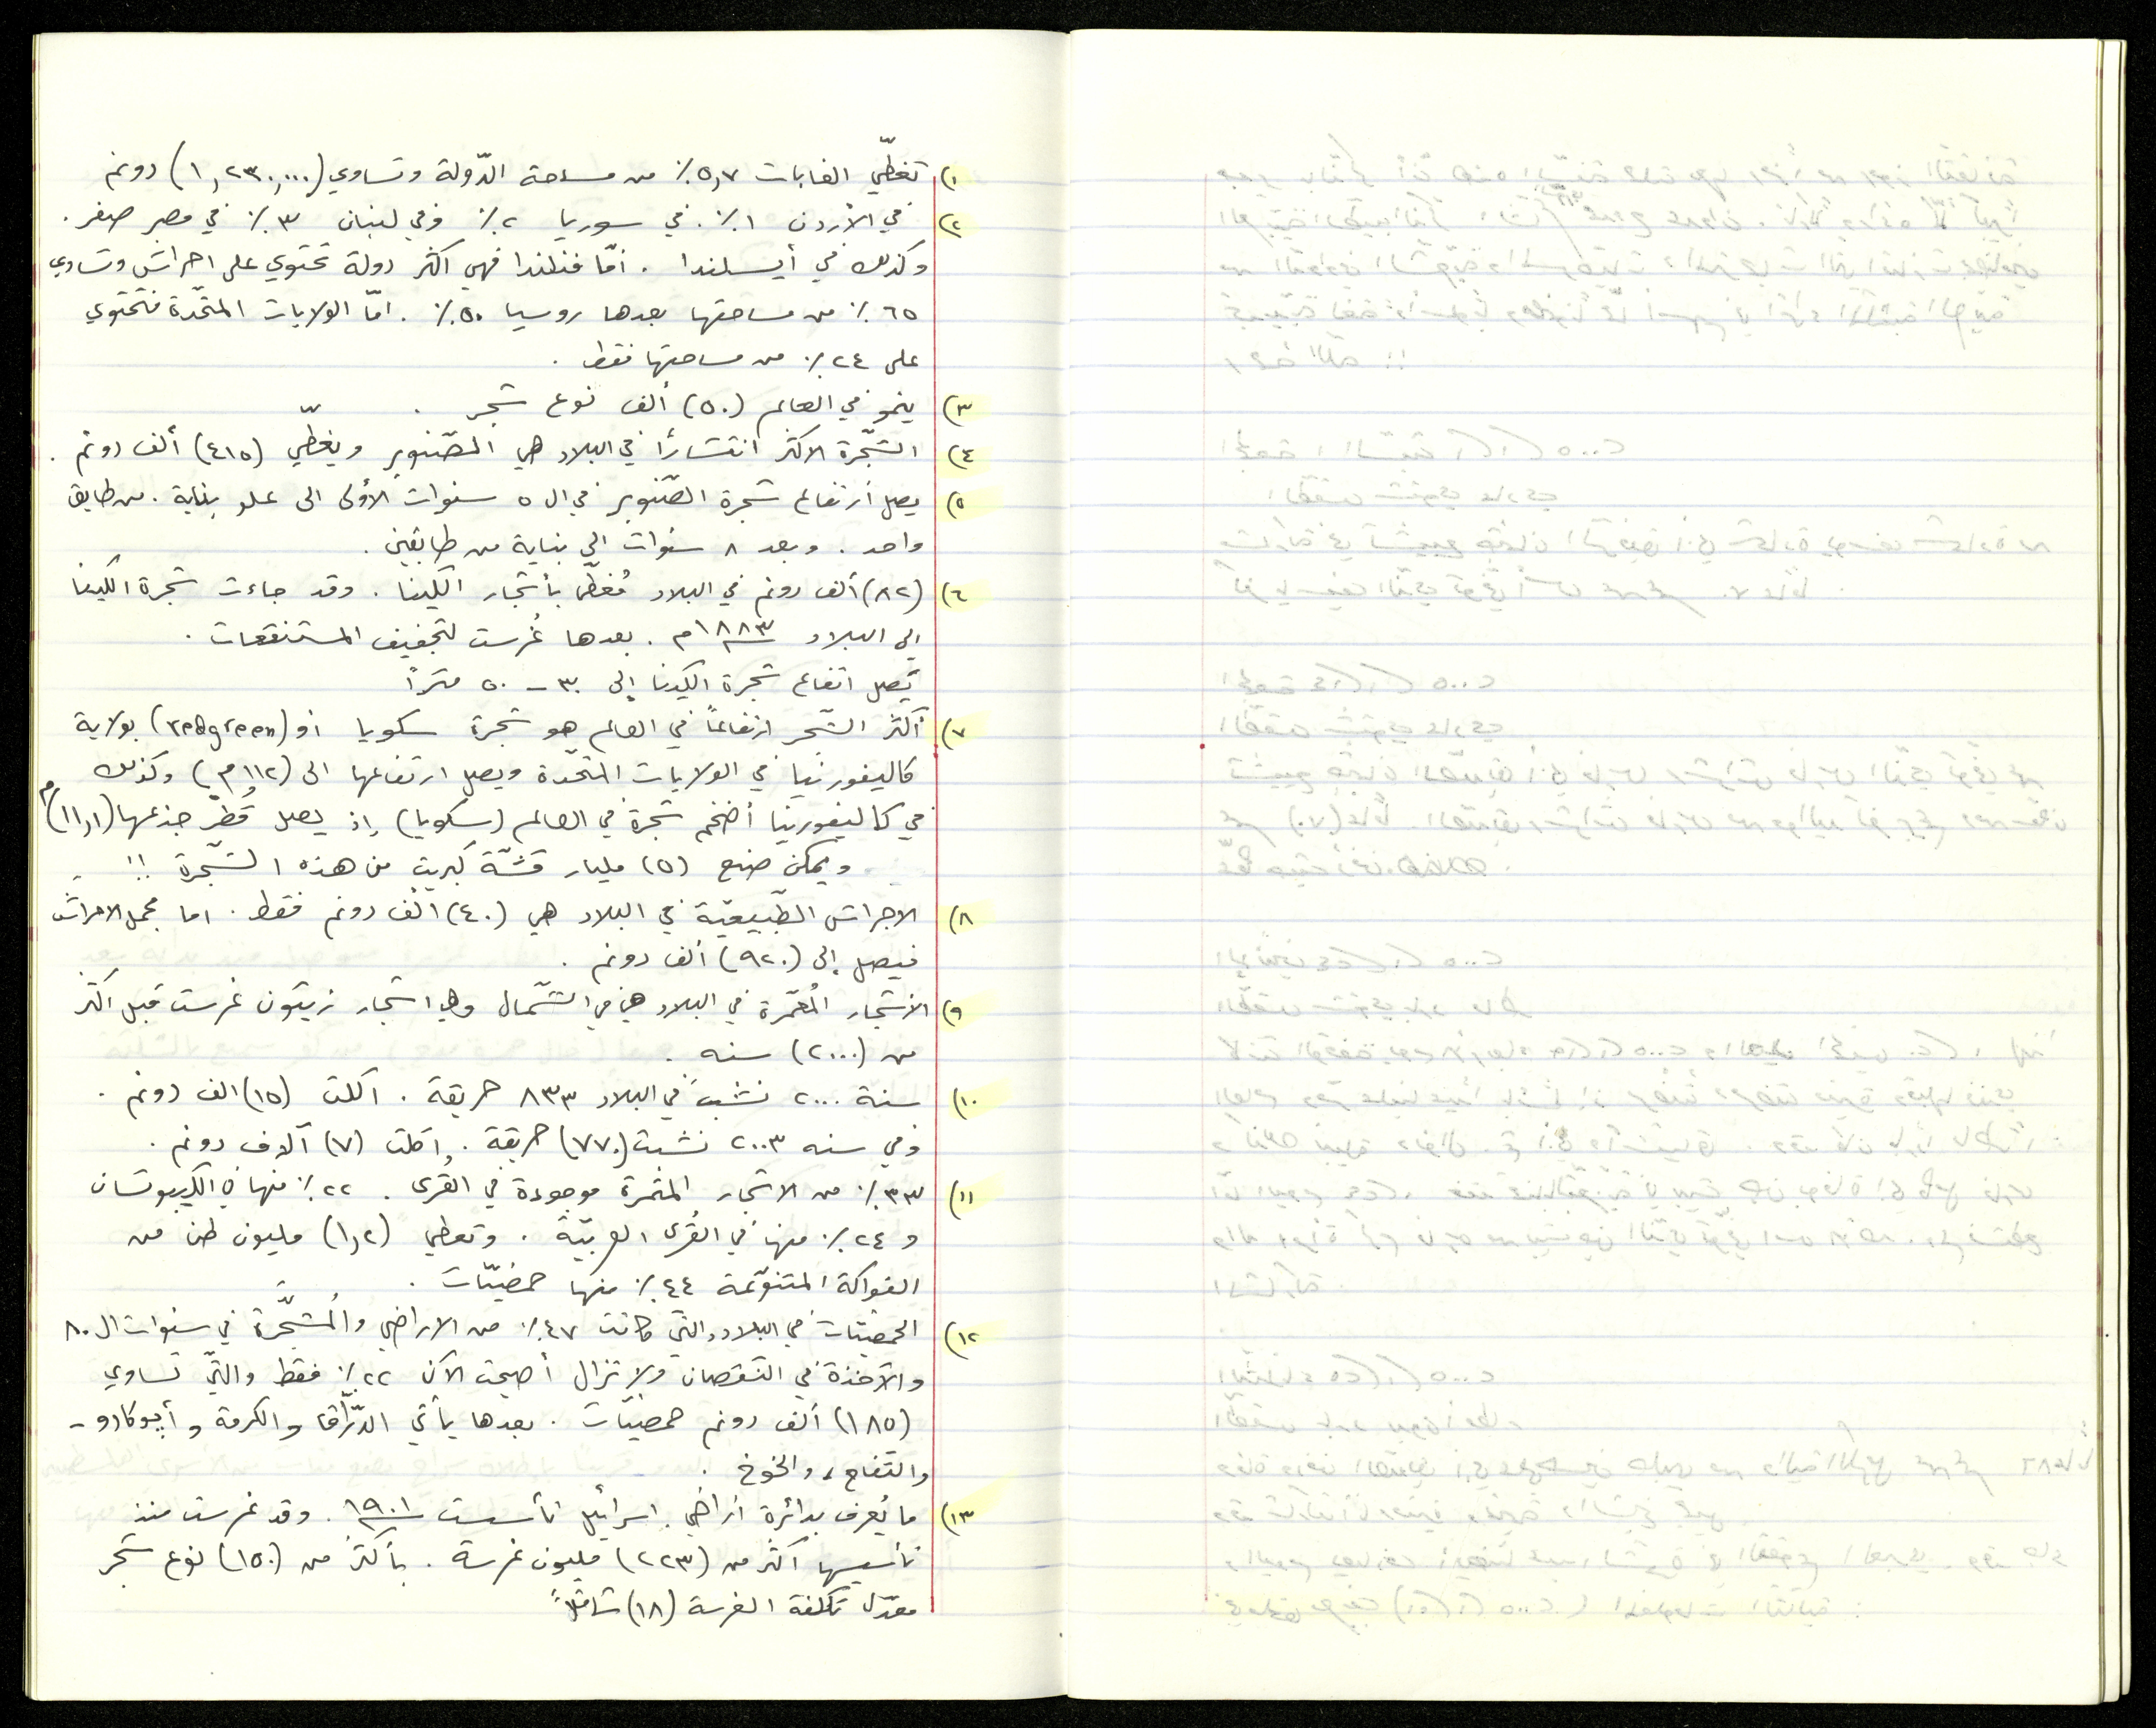 ١) تغطّي الغابات ٥,٧٪ من مساحة الدّولة وتساوي (١,٢٣٠,٠٠٠) دونم
٢) في الأردن ١٪. في سوريا ٢٪ وفي لبنان ٣٪ في مصر صفر.
وكذلك في أيسلندا. أمّا فنلندا فهي اكثر دولة تحتوي على احراش وتساوي
٦٥٪ من مساحتها بعدها روسيا ٥٠٪. امّا الولايات المتّحدة فتحتوي
على ٢٤٪ من مساحتها فقط.
٣) ينمو في العالم (٥٠) ألف نوع شجر.
٤) الشّجرة الاكثر انتشارًا في البلاد هي الصّنوبر ويغطّي (٤١٥) ألف دونم.
٥) يصل أرتفاع شجرة الصّنوبر في ال ٥ سنوات الأولى الى علو بناية من طابق
واحد. وبعد ٨ سنوات الى بناية من طابقين.
٦) (٨٢) ألف دونم في البلاد مُغطّى بأشجار الكينا. وقد جاءت شجرة الكينا
الى البلاد ١٨٨٣م. بعدها غُرست لتجفيف المستنقعات.
يَصل اتفاع شجرة الكينا إلى ٣٠ - ٥٠ مترًا
٧) أكثر الشّجر ارتفاعًا في العالم هو شجرة سكويا او (redgreen) بولاية
كاليفورنيا في الولايات المتّحدة ويصل ارتفاعها الى (١١٢م) وكذلك
في كاليفورنيا أضخم شجرة في العالم (سكويا) إذ يصل قُطْر جذعها (١١,١)م
ويمكن صنع (٥) مليار قشّة كبريت من هذه الشّجرة !!
٨) الاحراش الطّبيعيّة في البلاد هي (٤٠) الف دونم فقط. اما مجمل الاحراش
فيصل إلى (٩٢٠) ألف دونم.
٩) الأشجار المُعمّرة في البلاد هي في الشّمال وهي اشجار زيتون غرست قبل اكثر
من (٢٠٠٠) سنه.
١٠) سنة ٢٠٠٠ نشبت في البلاد ٨٣٣ حريقة. اكلت (١٥) الف دونم.
وفي سنه ٢٠٠٣ نشبت (٧٧٠) حريقة. اكلت (٧) آلاف دونم.
١١) ٣٣٪ من الاشجار المثمرة موجودة في القُرى. ٢٢٪ منها في الكيبوتسات
و ٢٤٪ منها في القُرى العربيّة. وتعطي (١,٢) مليون طن من
الفواكة المتنوّعة ٤٤٪ منها حمضيّات.
١٢) الحمضيّات في البلاد والتي كانت ٤٧٪ من الاراضي والمُشجّرة في سنوات ال ٨٠
والآخذة في النّقصان ولا تزال أصبحت الآن ٢٢٪ فقط والتّي تساوي
(١٨٥) ألف دونم حمضيّات. بعدها يأتي الدّرّاقا والكرمة وأيوكادو -
والتّفاح، والخوخ.
١٣) ما يُعرف بدائرة اراضي اسرائيل تأسست ١٩٠١. وقد غرست منذ
تأسيسها اكثر من (٢٢٣) مليون غرسة. بأكثر من (١٥٠) نوع شجر
معدّل تكلفة الغرسة (١٨) شاقلاً